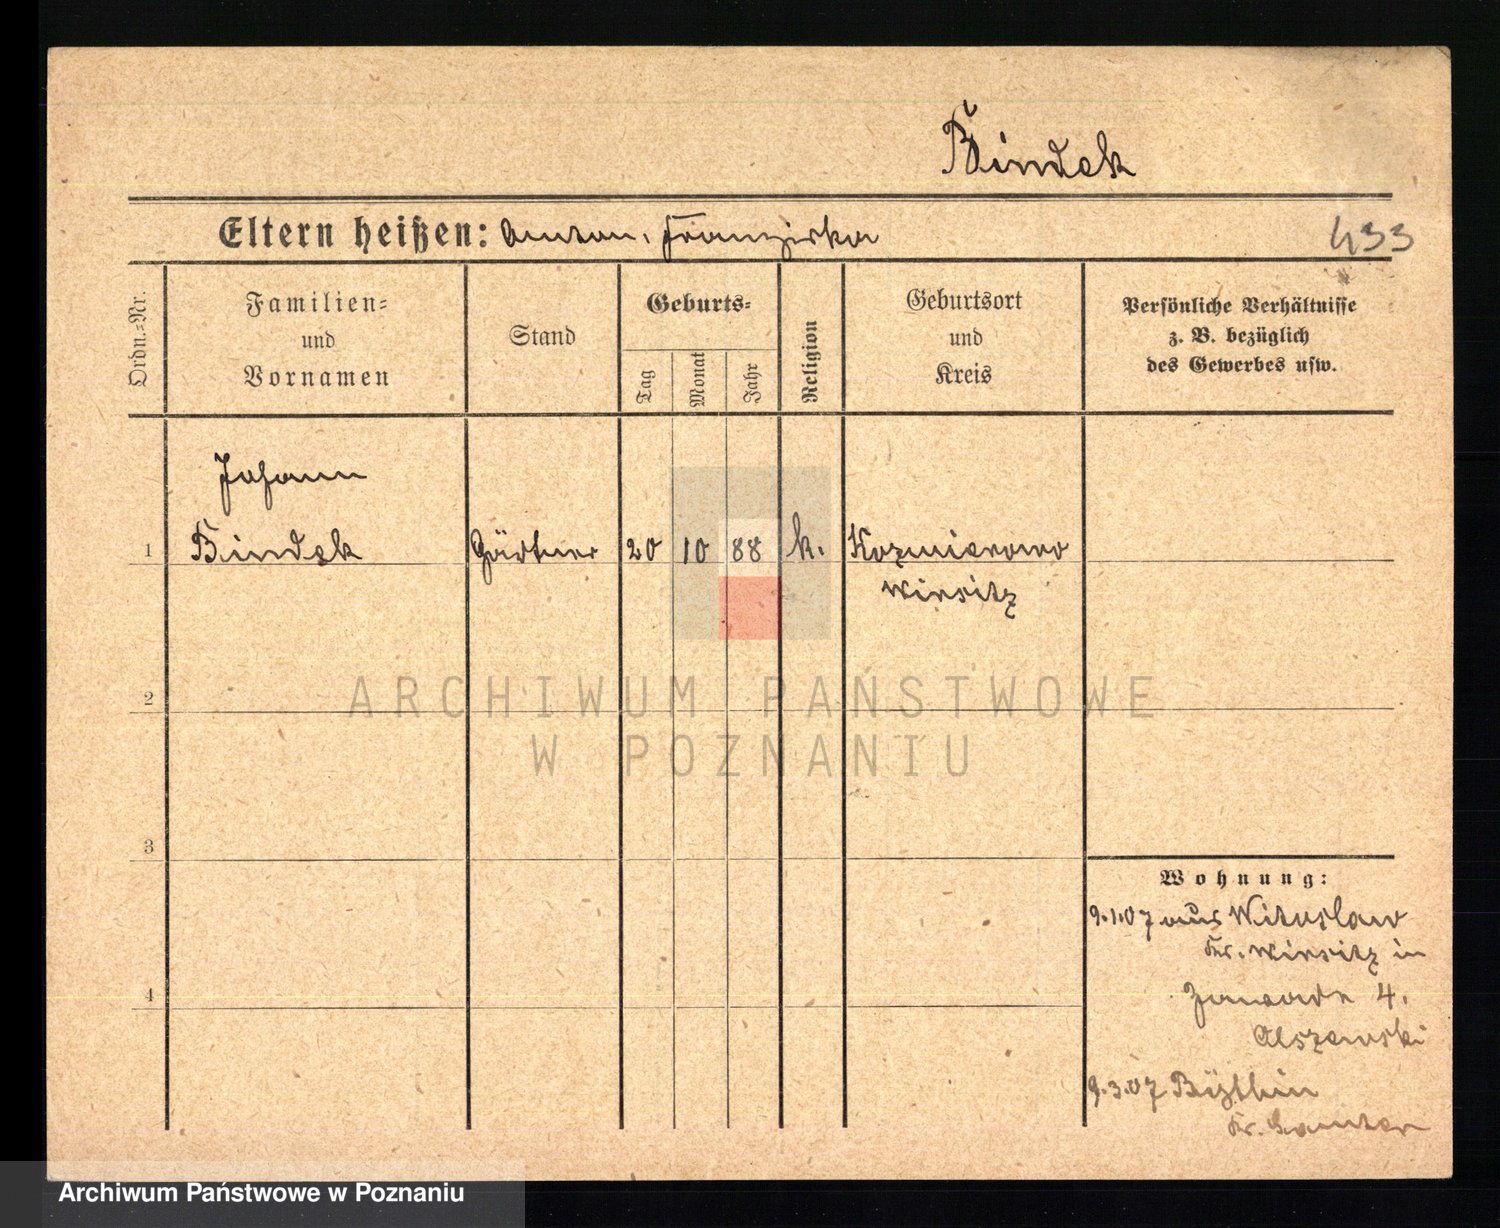 Bindek
Eltern heißen: Anton, Franziska
433
Ordn.=Nr.
Familien=
und
Vornamen
Stand
Geburts=
Tag
Monat
Jahr
Religion
Geburtsort
und
Kreis
Persönliche Verhältnisse
z. B. bezüglich
des Gewerbes usw.
Johann
1 Bindek Gärtner 20 10 88 k. Kazmierowo
Wirsitz
2
3
4
Wohnung:
9.1.07 aus Wituslaw
Kr. Wirsitz in
Zawade 4.
Olszewski
9.3.07 Bythin
Kr. Samter
ARCHIWUM PAŃSTWOWE
W POZNANIU
Archiwum Państwowe w Poznaniu